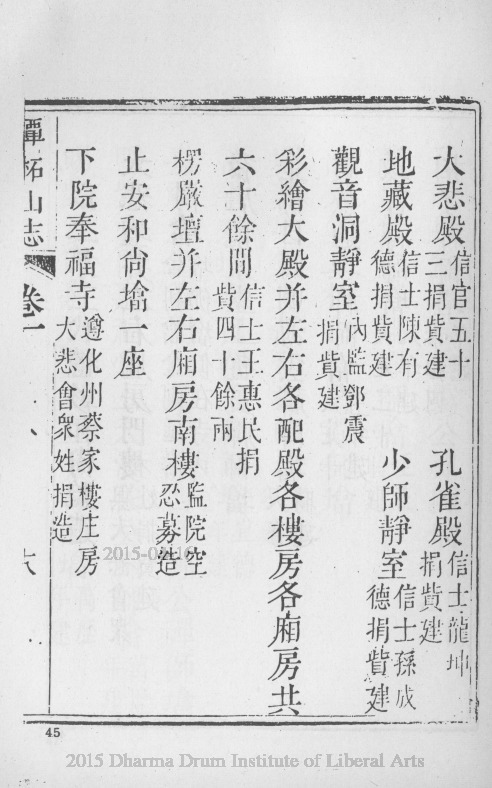 大悲殿信官五十三捐貲建 孔雀殿信士龍坤捐貲建
地藏殿信士陳有德捐貲建 少師靜室信士孫成德捐貲建
觀音洞靜室內監鄧震捐貲建
彩繪大殿并左右各配殿各樓房各廂房共
六十餘間信士王惠民捐貲四十餘兩
楞嚴壇并左右廂房南樓監院空忍募造
止安和尙墖一座
下院奉福寺遵化州蔡家樓庄房大悲會衆姓捐造
潭柘山志 卷一 六
45
2015 Dharma Drum Institute of Liberal Arts